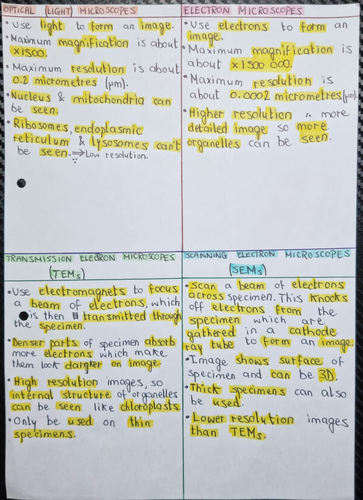 OPTICAL (LIGHT) MICROSCOPES
• Use light to form an image.
• Maximum magnification is about
×1500.
• Maximum resolution is about
0.2 micrometres (μm).
• Nucleus & mitochondria can
be seen.
• Ribosomes, endoplasmic
reticulum & lysosomes can't
be seen. ⇒ Low resolution.
ELECTRON MICROSCOPES
• Use electrons to form an
image.
• Maximum magnification is
about ×1500 000.
• Maximum resolution is
about 0.0002 micrometres (μm).
• Higher resolution ∴ more
detailed image so more
organelles can be seen.
TRANSMISSION ELECTRON MICROSCOPES
(TEMs)
• Use electromagnets to focus
a beam of electrons, which
is then transmitted through
the specimen.
• Denser parts of specimen absorb
more electrons which make
them look darker on image.
• High resolution images, so
internal structure of organelles
can be seen like chloroplasts
• Only be used on thin
specimens.
SCANNING ELECTRON MICROSCOPES
(SEMs)
• Scan a beam of electrons
across specimen. This knocks
off electrons from the
specimen which are
gathered in a cathode
ray tube to form an image.
• Image shows surface of
specimen and can be 3D.
• Thick specimens can also
be used.
• Lower resolution images
than TEMs.